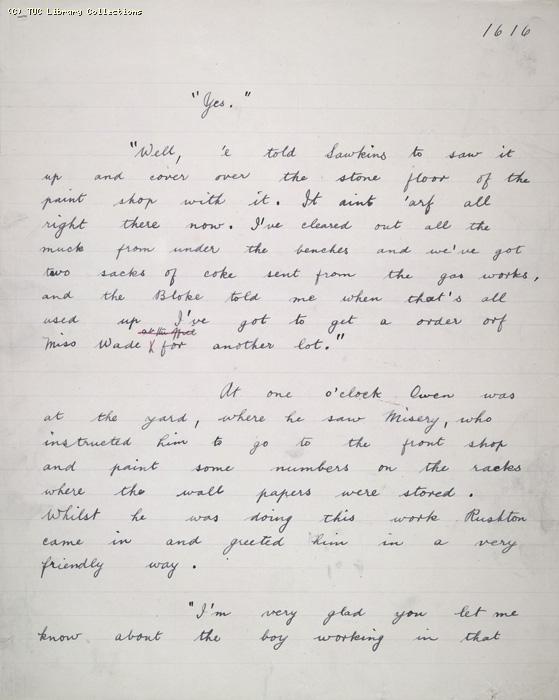 (C) TUC Library Collections
1616
"Yes."
"Well, 'e told Sawkins to saw it
up and cover over the stone floor of the
paint shop with it. It aint 'arf all
right there now. I've cleared out all the
muck from under the benches and we've got
two sacks of coke sent from the gas works,
and the Bloke told me when that's all
used up I've got to get a order orf
at the office
Miss Wade for another lot."
At one o'clock Owen was
at the yard, where he saw Misery, who
instructed him to go to the front shop
and paint some numbers on the racks
where the wall papers were stored.
Whilst he was doing this work Rushton
came in and greeted him in a very
friendly way.
"I'm very glad you let me
know about the boy working in that